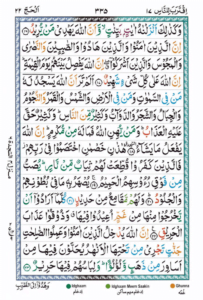 اقترب للناس ١٧ ٣٣٥ الحج ٢٢
وَكَذٰلِكَ اَنْزَلْنٰهُ اٰيٰتٍۭ بَيِّنٰتٍ ۙ وَّاَنَّ اللّٰهَ يَهْدِيْ مَنْ يُّرِيْدُ
اِنَّ الَّذِيْنَ اٰمَنُوْا وَالَّذِيْنَ هَادُوْا وَالصّٰبِـِٕيْنَ وَالنَّصٰرٰى
وَالْمَجُوْسَ وَالَّذِيْنَ اَشْرَكُوْٓا ۖ اِنَّ اللّٰهَ يَفْصِلُ بَيْنَهُمْ يَوْمَ
الْقِيٰمَةِ ؕ اِنَّ اللّٰهَ عَلٰى كُلِّ شَيْءٍ شَهِيْدٌ اَلَمْ تَرَ اَنَّ اللّٰهَ يَسْجُدُ لَهٗ
مَنْ فِي السَّمٰوٰتِ وَمَنْ فِي الْاَرْضِ وَالشَّمْسُ وَالْقَمَرُ وَالنُّجُوْمُ
وَالْجِبَالُ وَالشَّجَرُ وَالدَّوَآبُّ وَكَثِيْرٌ مِّنَ النَّاسِ ؕ وَكَثِيْرٌ حَقَّ
عَلَيْهِ الْعَذَابُ ؕ وَمَنْ يُّهِنِ اللّٰهُ فَمَا لَهٗ مِنْ مُّكْرِمٍ ؕ اِنَّ اللّٰهَ
يَفْعَلُ مَا يَشَآءُ هٰذٰنِ خَصْمٰنِ اخْتَصَمُوْا فِيْ رَبِّهِمْ
فَالَّذِيْنَ كَفَرُوْا قُطِّعَتْ لَهُمْ ثِيَابٌ مِّنْ نَّارٍ ؕ يُصَبُّ مِنْ
فَوْقِ رُءُوْسِهِمُ الْحَمِيْمُ يُصْهَرُ بِهٖ مَا فِيْ بُطُوْنِهِمْ
وَالْجُلُوْدُ وَلَهُمْ مَّقَامِعُ مِنْ حَدِيْدٍ كُلَّمَآ اَرَادُوْٓا اَنْ
يَّخْرُجُوْا مِنْهَا مِنْ غَمٍّ اُعِيْدُوْا فِيْهَا ۗ وَذُوْقُوْا عَذَابَ
الْحَرِيْقِ اِنَّ اللّٰهَ يُدْخِلُ الَّذِيْنَ اٰمَنُوْا وَعَمِلُوا الصّٰلِحٰتِ
جَنّٰتٍ تَجْرِيْ مِنْ تَحْتِهَا الْاَنْهٰرُ يُحَلَّوْنَ فِيْهَا مِنْ
اَسَاوِرَ مِنْ ذَهَبٍ وَّلُؤْلُؤًا ؕ وَلِبَاسُهُمْ فِيْهَا حَرِيْرٌ
Idghaam Idghaam Meem Saakin Ghunna